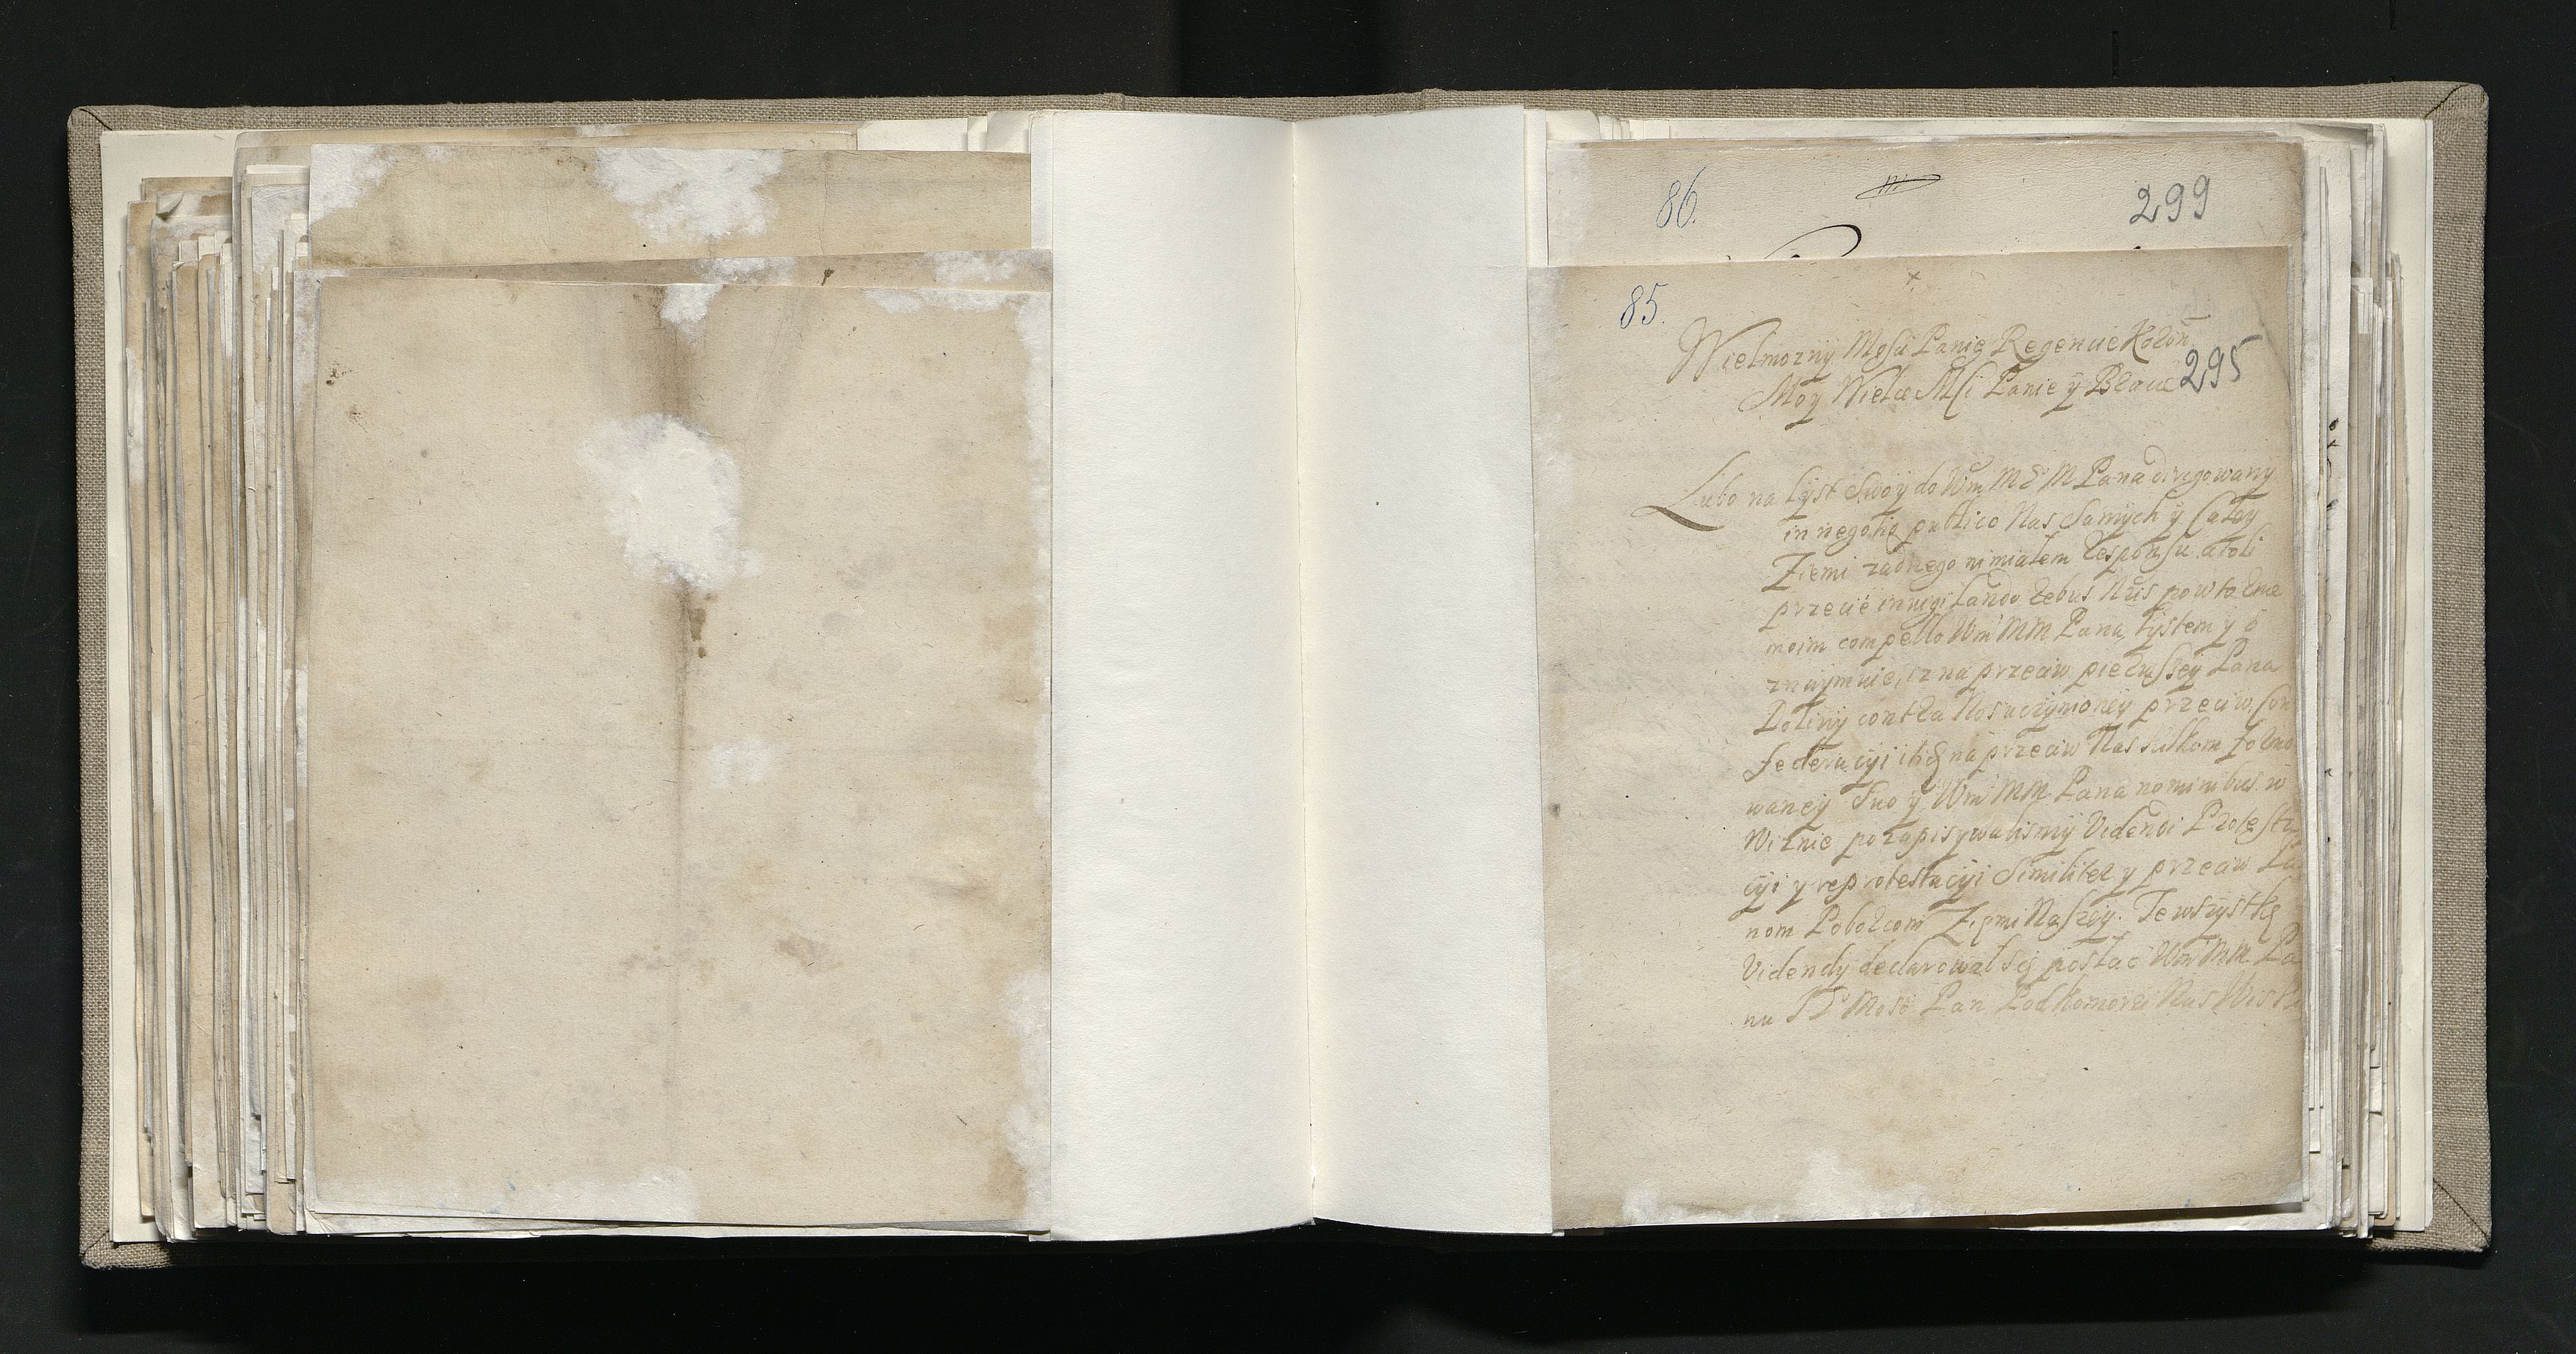 86.
299
85.
295
Wielmozny Mosci Panie Regencie Koron
Moy Wielce Msci Panie y Bracie
Lubo na lyst swoy do Wm M Pana dirigowany
in negotio publico Nas samych y Całey
Ziemi zadnego nimiałem responsu. atoli
przecie invigilando rebus Nris powtorne
moim compello Wm MM Pana, lystem y o
znaymuie, iz na przeciw pierwszey Pana
contra Nos uczynioney przeciw Con
federacyi i na przeciw Nas
waney Suo y Wm MM Pana nominibus w
pozapisywalismy Videndi Protesta
cyi y reprotestacyi Similiter y przeciw Pa
nom Poborcom Ziemi Naszey. Te wszystkie
Videndy declarował się posłac Wm MM Pa
nu Mosc Pan Podkomorzi Nas